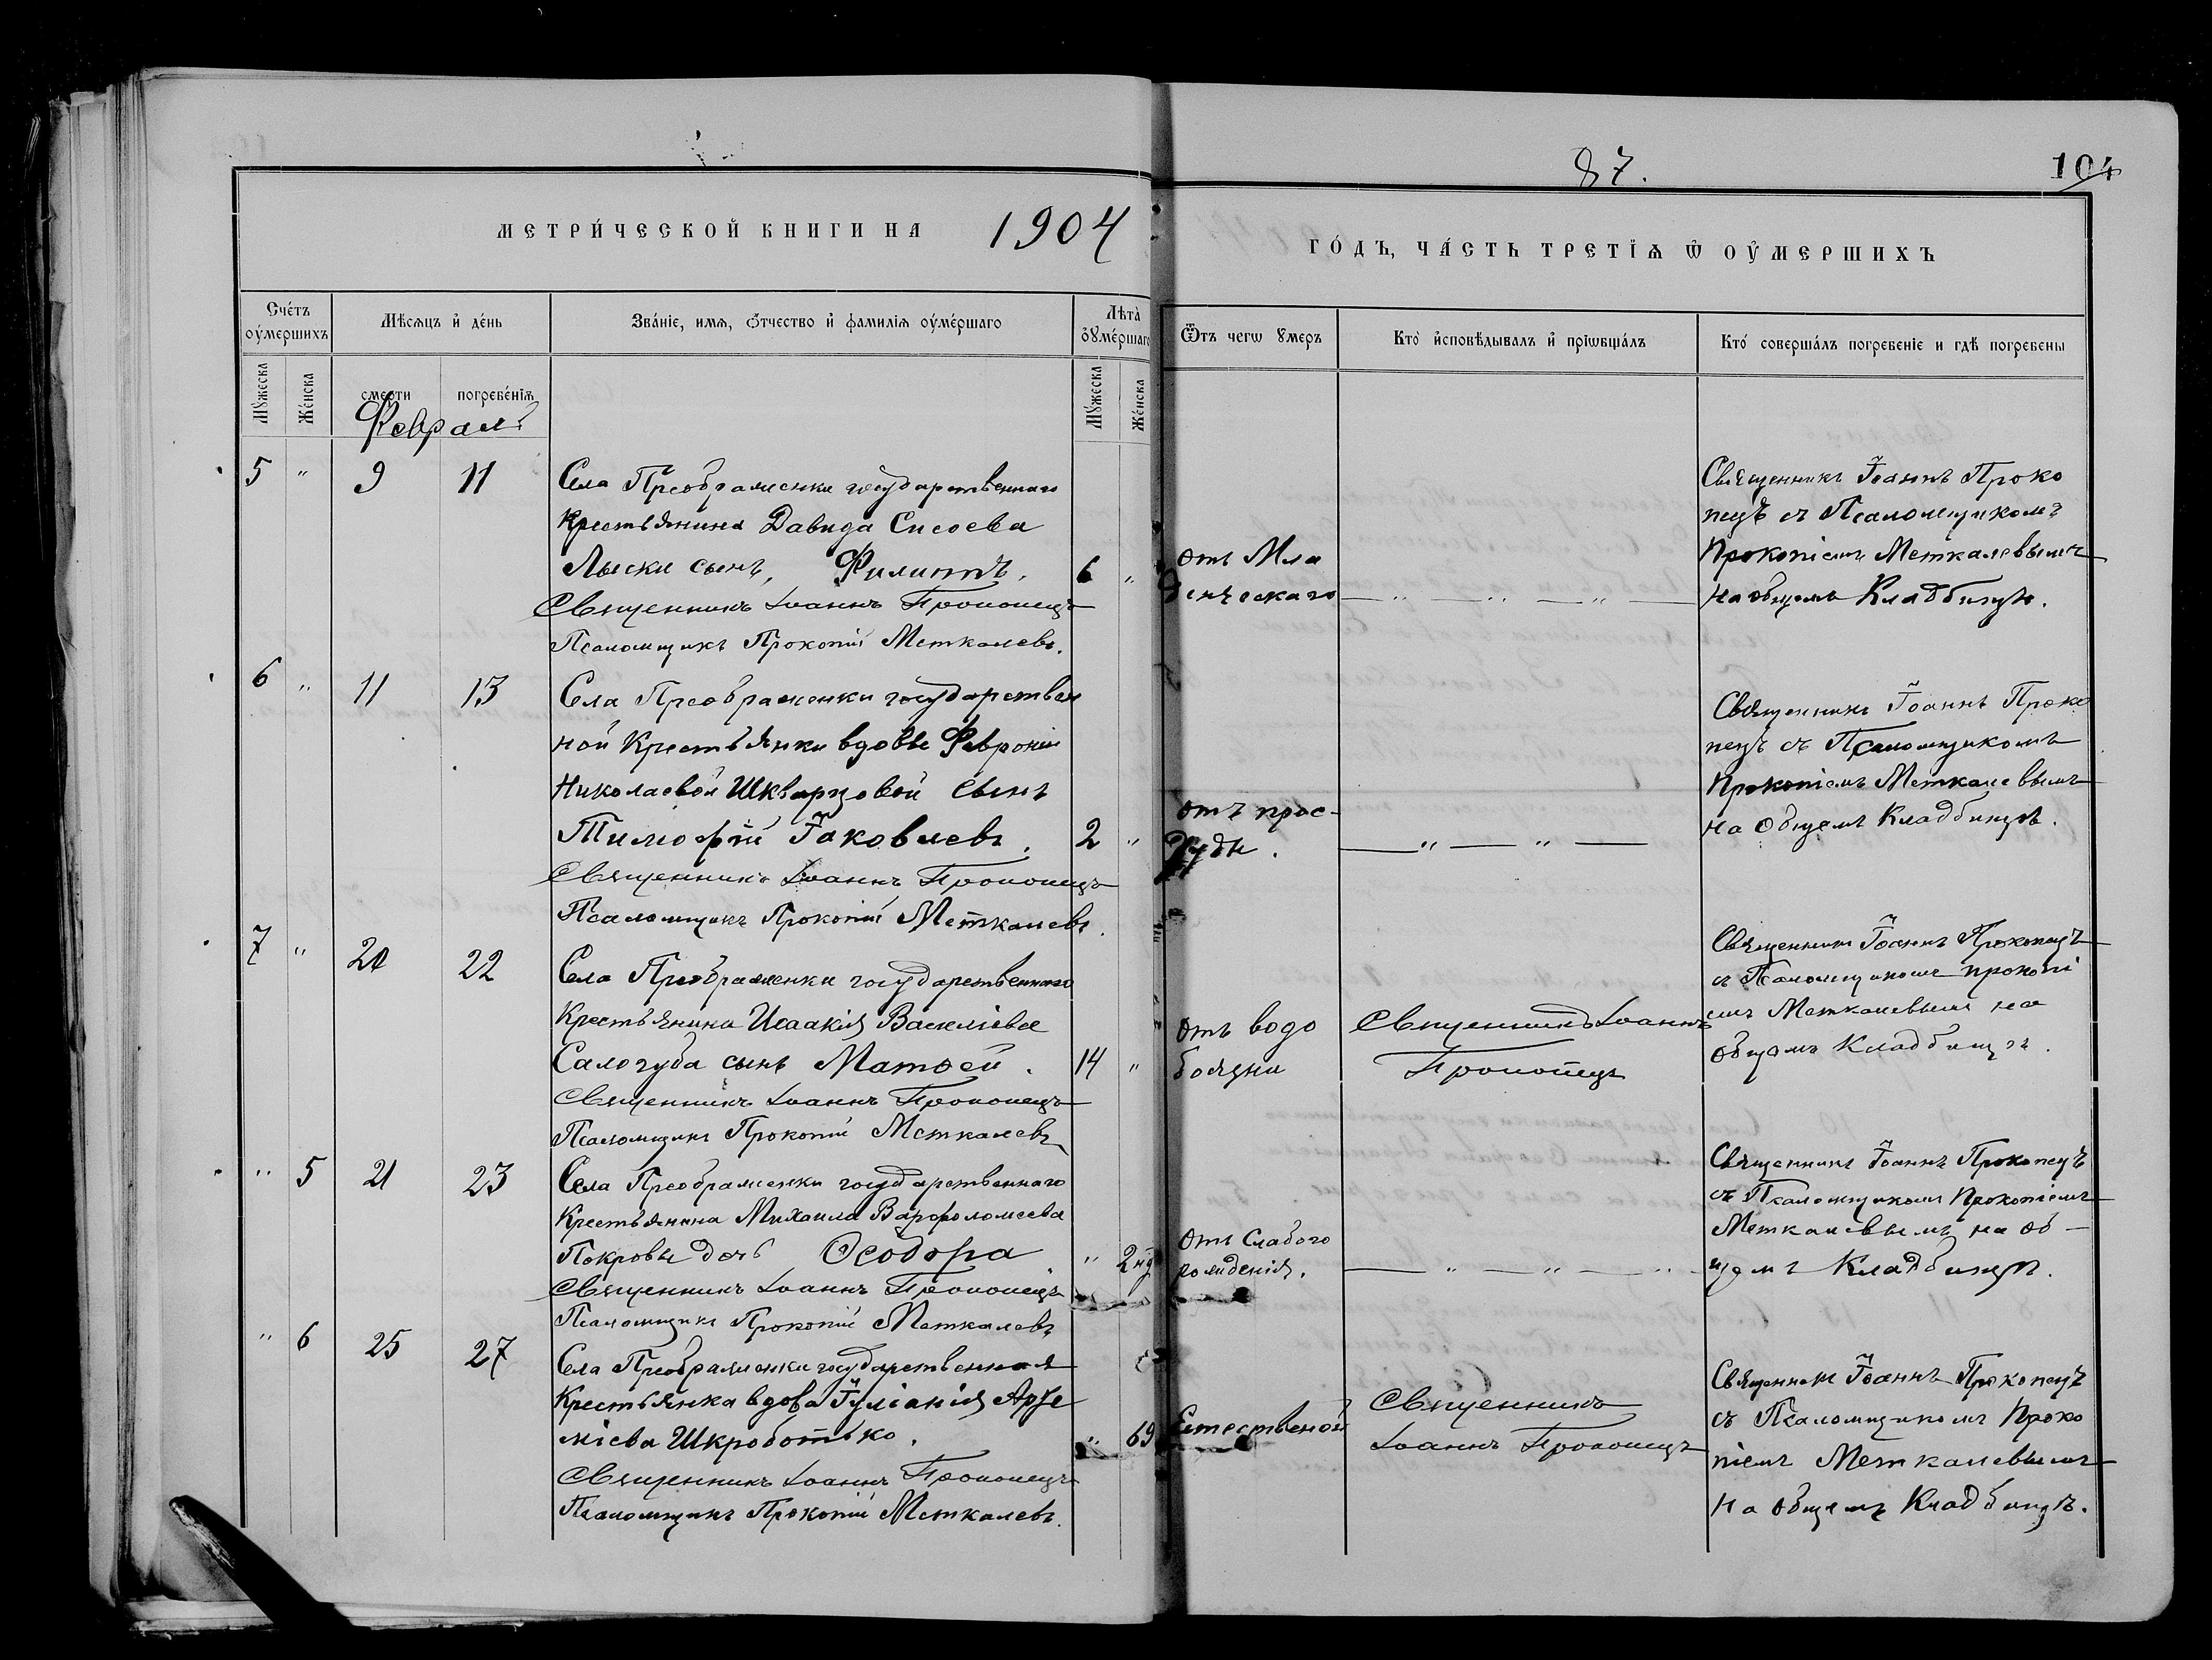 87.
104
МЕТРИ́ЧЕСКОЙ КНИГИ НА 1904
ГО́ДЪ, ЧА́СТЬ ТРЕТІѦ Ѡ ОУ҆МЕРШИХЪ
Сче́тъ оу҆́мершихъ
Мѣсѧцъ и҆ де́нь
Зва́ніе, имѧ, ѻ҆́тчество и҆ фамиліѧ оу҆ме́ршаго
Лѣта̀ оу҆ме́ршаго
Ѿтъ чегѡ ѹмеръ
Кто̀ и҆сповѣ́дывалъ и҆ прїѡбща́лъ
Кто́ соверша́лъ погребе́ніе и гдѣ̀ погребены
Мꙋжеска
Же́нска
смерти
погребе́нїѧ
Мꙋжеска
Же́нска
Февраль
5 " 9 11
Села Преображенки государственнаго
Крестьянина Давида Сисоева
Лыски сынъ, Филиппъ. 6 "
Священникъ Іоаннъ Прокопецъ
Псаломщикъ Прокопій Меткалевъ.
отъ Мла
денческаго
— " — " — " —
Священникъ Іоаннъ Проко
пецъ съ Псаломщикомъ
Прокопіемъ Меткалевымъ
на общемъ Кладбищѣ.
6 " 11 13
Села Преображенки государствен
ной Крестьянки вдовы Февроніи
Николаевой Шкварцовой сынъ
Тимофей Іаковлевъ. 2 "
Священникъ Іоаннъ Прокопецъ
Псаломщикъ Прокопій Меткалевъ.
отъ прос-
туды.
— " — " —
Священникъ Іоаннъ Проко
пецъ съ Псаломщикомъ
Прокопіемъ Меткалевымъ
на общемъ Кладбищѣ.
7 " 20 22
Села Преображенки государственнаго
Крестьянина Исаакія Василіева
Салогуба сынъ Матѳей. 14 "
Священникъ Іоаннъ Прокопецъ
Псаломщикъ Прокопій Меткалевъ
отъ водо
боязни
Священникъ Іоаннъ
Прокопецъ
Священникъ Іоаннъ Прокопецъ
съ Псаломщикомъ Прокопі
емъ Меткалевымъ на
общемъ Кладбищѣ.
" 5 21 23
Села Преображенки государственнаго
Крестьянина Михаила Варфоломеева
Покровы дочь Ѳеодора " 2 нд
Священникъ Іоаннъ Прокопецъ
Псаломщикъ Прокопій Меткалевъ
отъ Слабого
рожденія.
— " — " — "
Священникъ Іоаннъ Прокопецъ
съ Псаломщикомъ Прокопіемъ
Меткалевымъ на об-
щемъ Кладбищѣ.
" 6 25 27
Села Преображенки государственная
Крестьянка вдова Іуліанія Арте
міева Шкроботько. " 69
Священникъ Іоаннъ Прокопецъ
Псаломщикъ Прокопій Меткалевъ.
Естественой
Священникъ
Іоаннъ Прокопецъ
Священникъ Іоаннъ Прокопецъ
съ Псаломщикомъ Проко
піемъ Меткалевымъ
на общемъ Кладбищѣ.